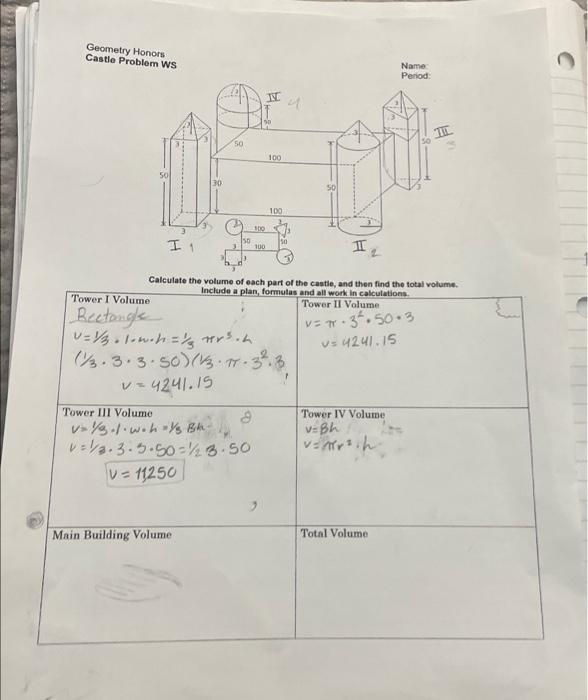 Geometry Honors
Castle Problem WS
Name:
Period:
IV 4
III 3
50
50
50
100
50
30
50
100
100
50
50
100
3
3
3
3
3
3
I 1
II 2
Calculate the volume of each part of the castle, and then find the total volume.
Include a plan, formulas and all work in calculations.
Tower I Volume
Rectangle
V=⅓·l·w·h=⅓ πr³·h
(⅓·3·3·50)(⅓·π·3²·3
V=4241.15
Tower II Volume
V=π·3²·50·3
V=4241.15
Tower III Volume
V=⅓·l·w·h=⅓Bh
V=⅓·3·3·50=½3·50
V=11,250
Tower IV Volume
V=Bh
V=πr²·h
Main Building Volume
Total Volume